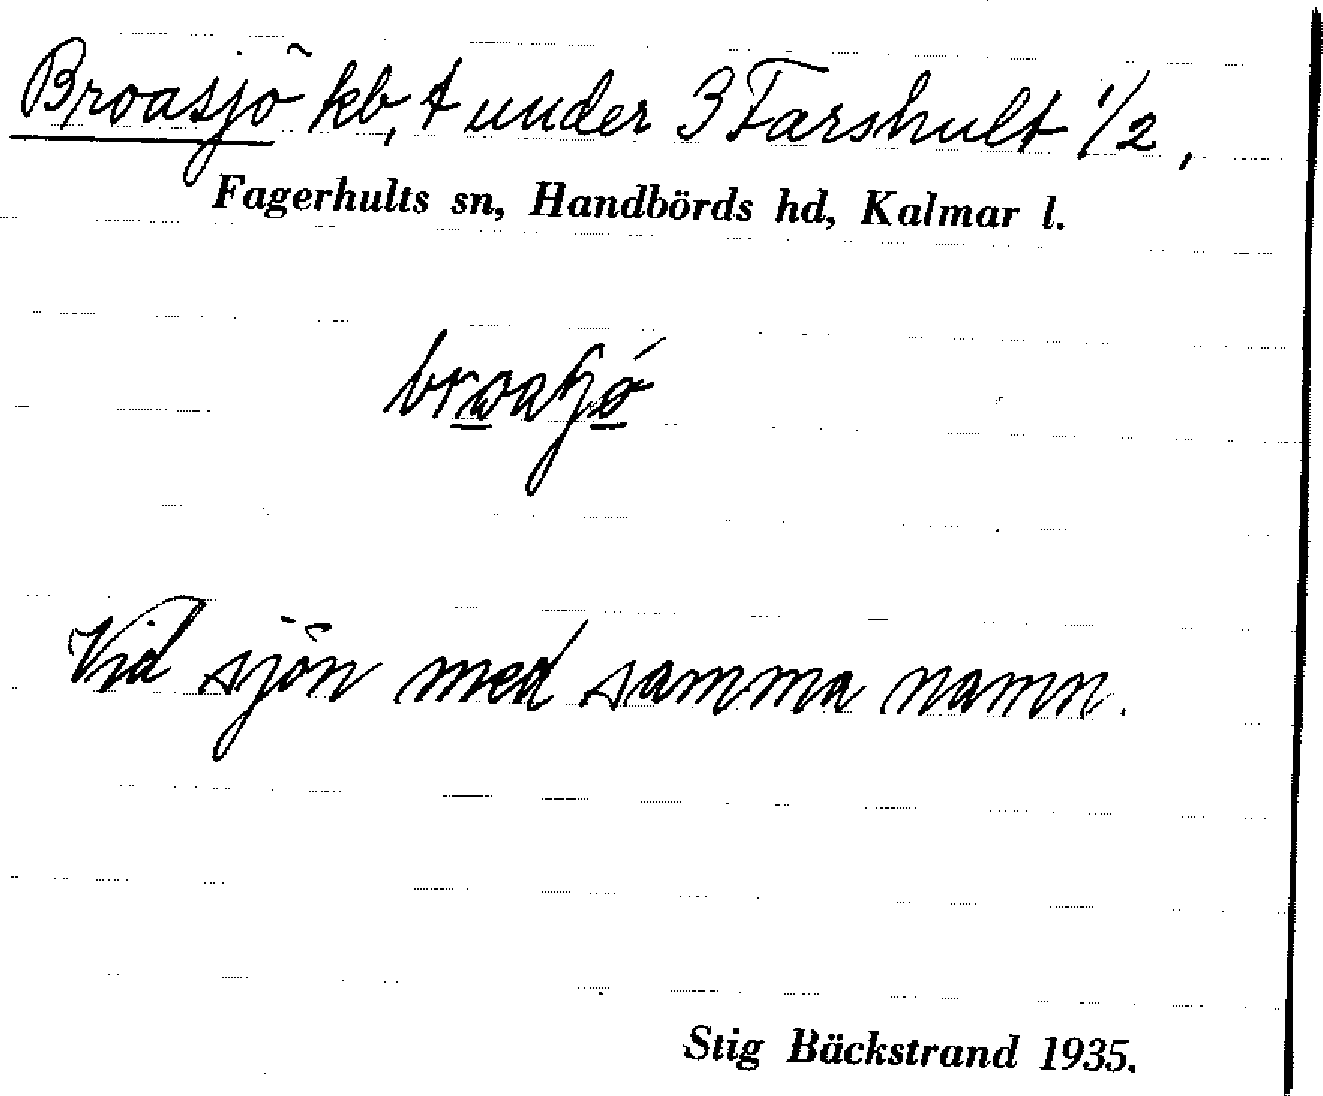 Broasjö kb, t under 3 Farshult 1/2,
Fagerhults sn, Handbörds hd, Kalmar l.
Vid sjön med samma namn.
Stig Bäckstrand 1935.